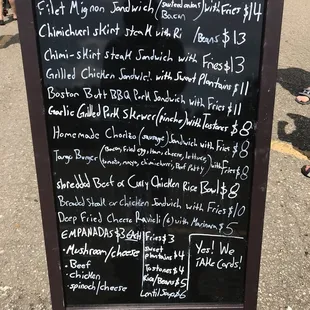 Filet Mignon Sandwich (sauteed onions) with Fries $14
Bacon
Chimichurri skirt steak with Ri /Beans $13
Chimi-skirt steak Sandwich with Fries $13
Grilled Chicken Sandwic with Sweet Plantains $11
Boston Butt BBQ Pork Sandwich with Fries $11
Garlic Grilled Pork Skewer (pincho) with Tostones $8
Homemade Chorizo (sausage) Sandwich with Fries $8
Burger (bacon, fried egg, ham, cheese, lettuce) with Fries $8
Shredded Beef or Curry Chicken Rice Bowl $8
Breaded steak or chicken Sandwich with Fries $10
Deep Fried Cheese Ravioli (6) with Marinara $5
EMPANADAS $3 EACH
• Mushroom/cheese
• Beef
• Chicken
• spinach/cheese
Fries $3
sweet plantains $4
Tostones $4
Rice/Beans $5
Lentil Soup $6
Yes! We
TAKE Cards!